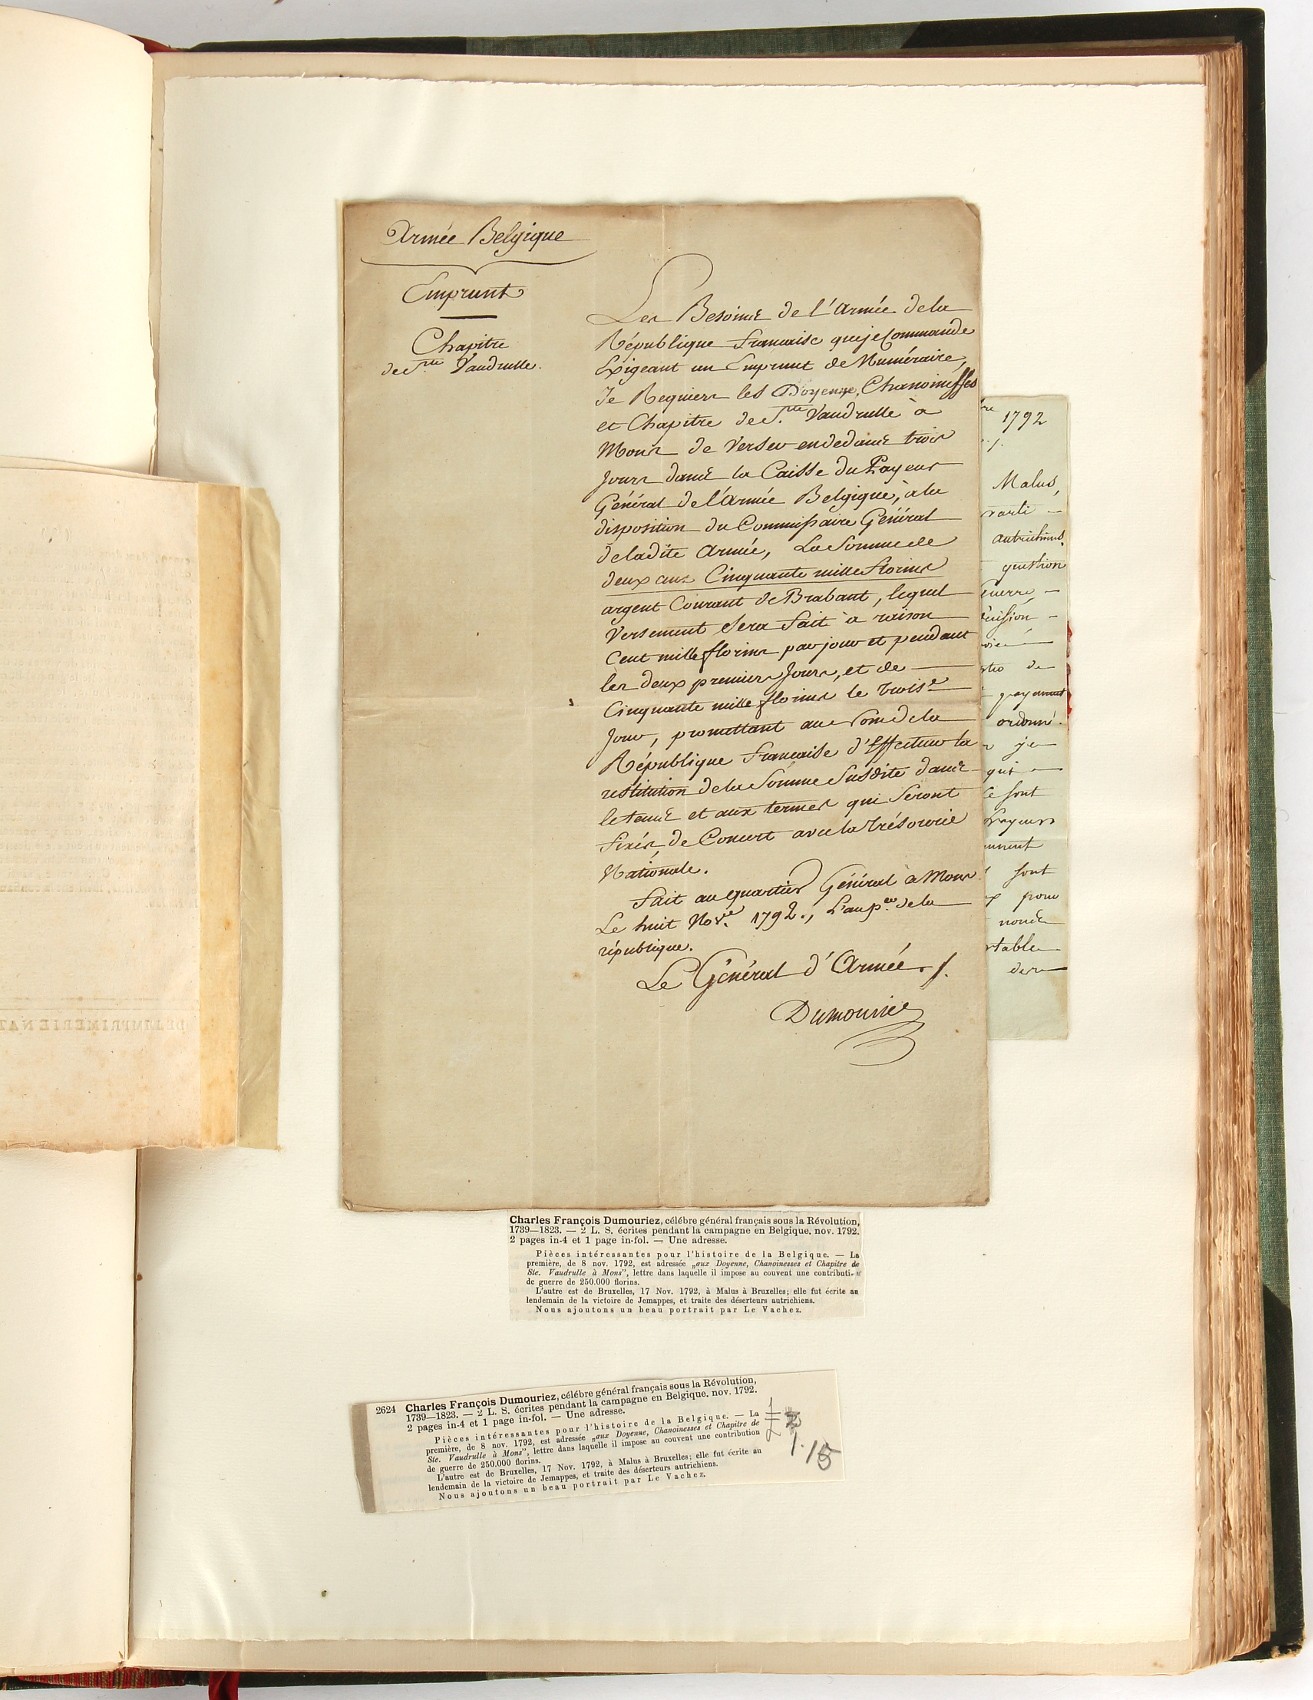 Armée Belgique
Emprunt
Chapitre
de Ste. Vaudrulle.
Les Besoins de l'Armée de la
République francaise que je Commande
Exigeant un Emprunt de Numéraire,
Je Requiers les Doyenne, Chanoinesses
et Chapitre de Ste. Vaudrulle à
Mons de Verser endedans trois
Jours dans la Caisse du Payeur
Général de l'Armée Belgique, à la
disposition du Commissaire Général
de ladite Armée, La Somme de
deux cens Cinquante mille florins
argent Courant de Brabant, lequel
Versement Sera fait à raison
Cent mille florins par jour et pendant
les deux premiers Jours, et de
Cinquante mille florins le trois.e
Jour, promettant au Nom de la
République Francaise d'Effectuer la
restitution de la Somme Susdite dans
le tems et aux termes qui Seront
fixés de Concert avec la Trésorerie
Nationale.
Fait au quartier Général à Mons
Le huit Nov.re 1792., L'an p.er de la
république.
Le Général d'Armée
Dumouriez
1792
Malus,
parti
autrichiens
question
Guerre
de
payement
ordonné.
je
qui
Ce sont
Payeurs
sont
pour
Charles François Dumouriez, célébre général français sous la Révolution,
1739—1823. — 2 L. S. écrites pendant la campagne en Belgique. nov. 1792.
2 pages in-4 et 1 page in-fol. — Une adresse.
Pièces intéressantes pour l'histoire de la Belgique. — La
première, de 8 nov. 1792, est adressée „aux Doyenne, Chanoinesses et Chapitre de
Ste. Vaudrulle à Mons", lettre dans laquelle il impose au couvent une contributi
de guerre de 250.000 florins.
L'autre est de Bruxelles, 17 Nov. 1792, à Malus à Bruxelles; elle fut écrite au
lendemain de la victoire de Jemappes, et traite des déserteurs autrichiens.
Nous ajoutons un beau portrait par Le Vachez.
2624 Charles François Dumouriez, célébre général français sous la Révolution,
1739—1823. — 2 L. S. écrites pendant la campagne en Belgique. nov. 1792.
2 pages in-4 et 1 page in-fol. — Une adresse.
Pièces intéressantes pour l'histoire de la Belgique. — La
première, de 8 nov. 1792, est adressée „aux Doyenne, Chanoinesses et Chapitre de
Ste. Vaudrulle à Mons", lettre dans laquelle il impose au couvent une contribution
de guerre de 250.000 florins.
L'autre est de Bruxelles, 17 Nov. 1792, à Malus à Bruxelles; elle fut écrite au
lendemain de la victoire de Jemappes, et traite des déserteurs autrichiens.
Nous ajoutons un beau portrait par Le Vachez.
1.15